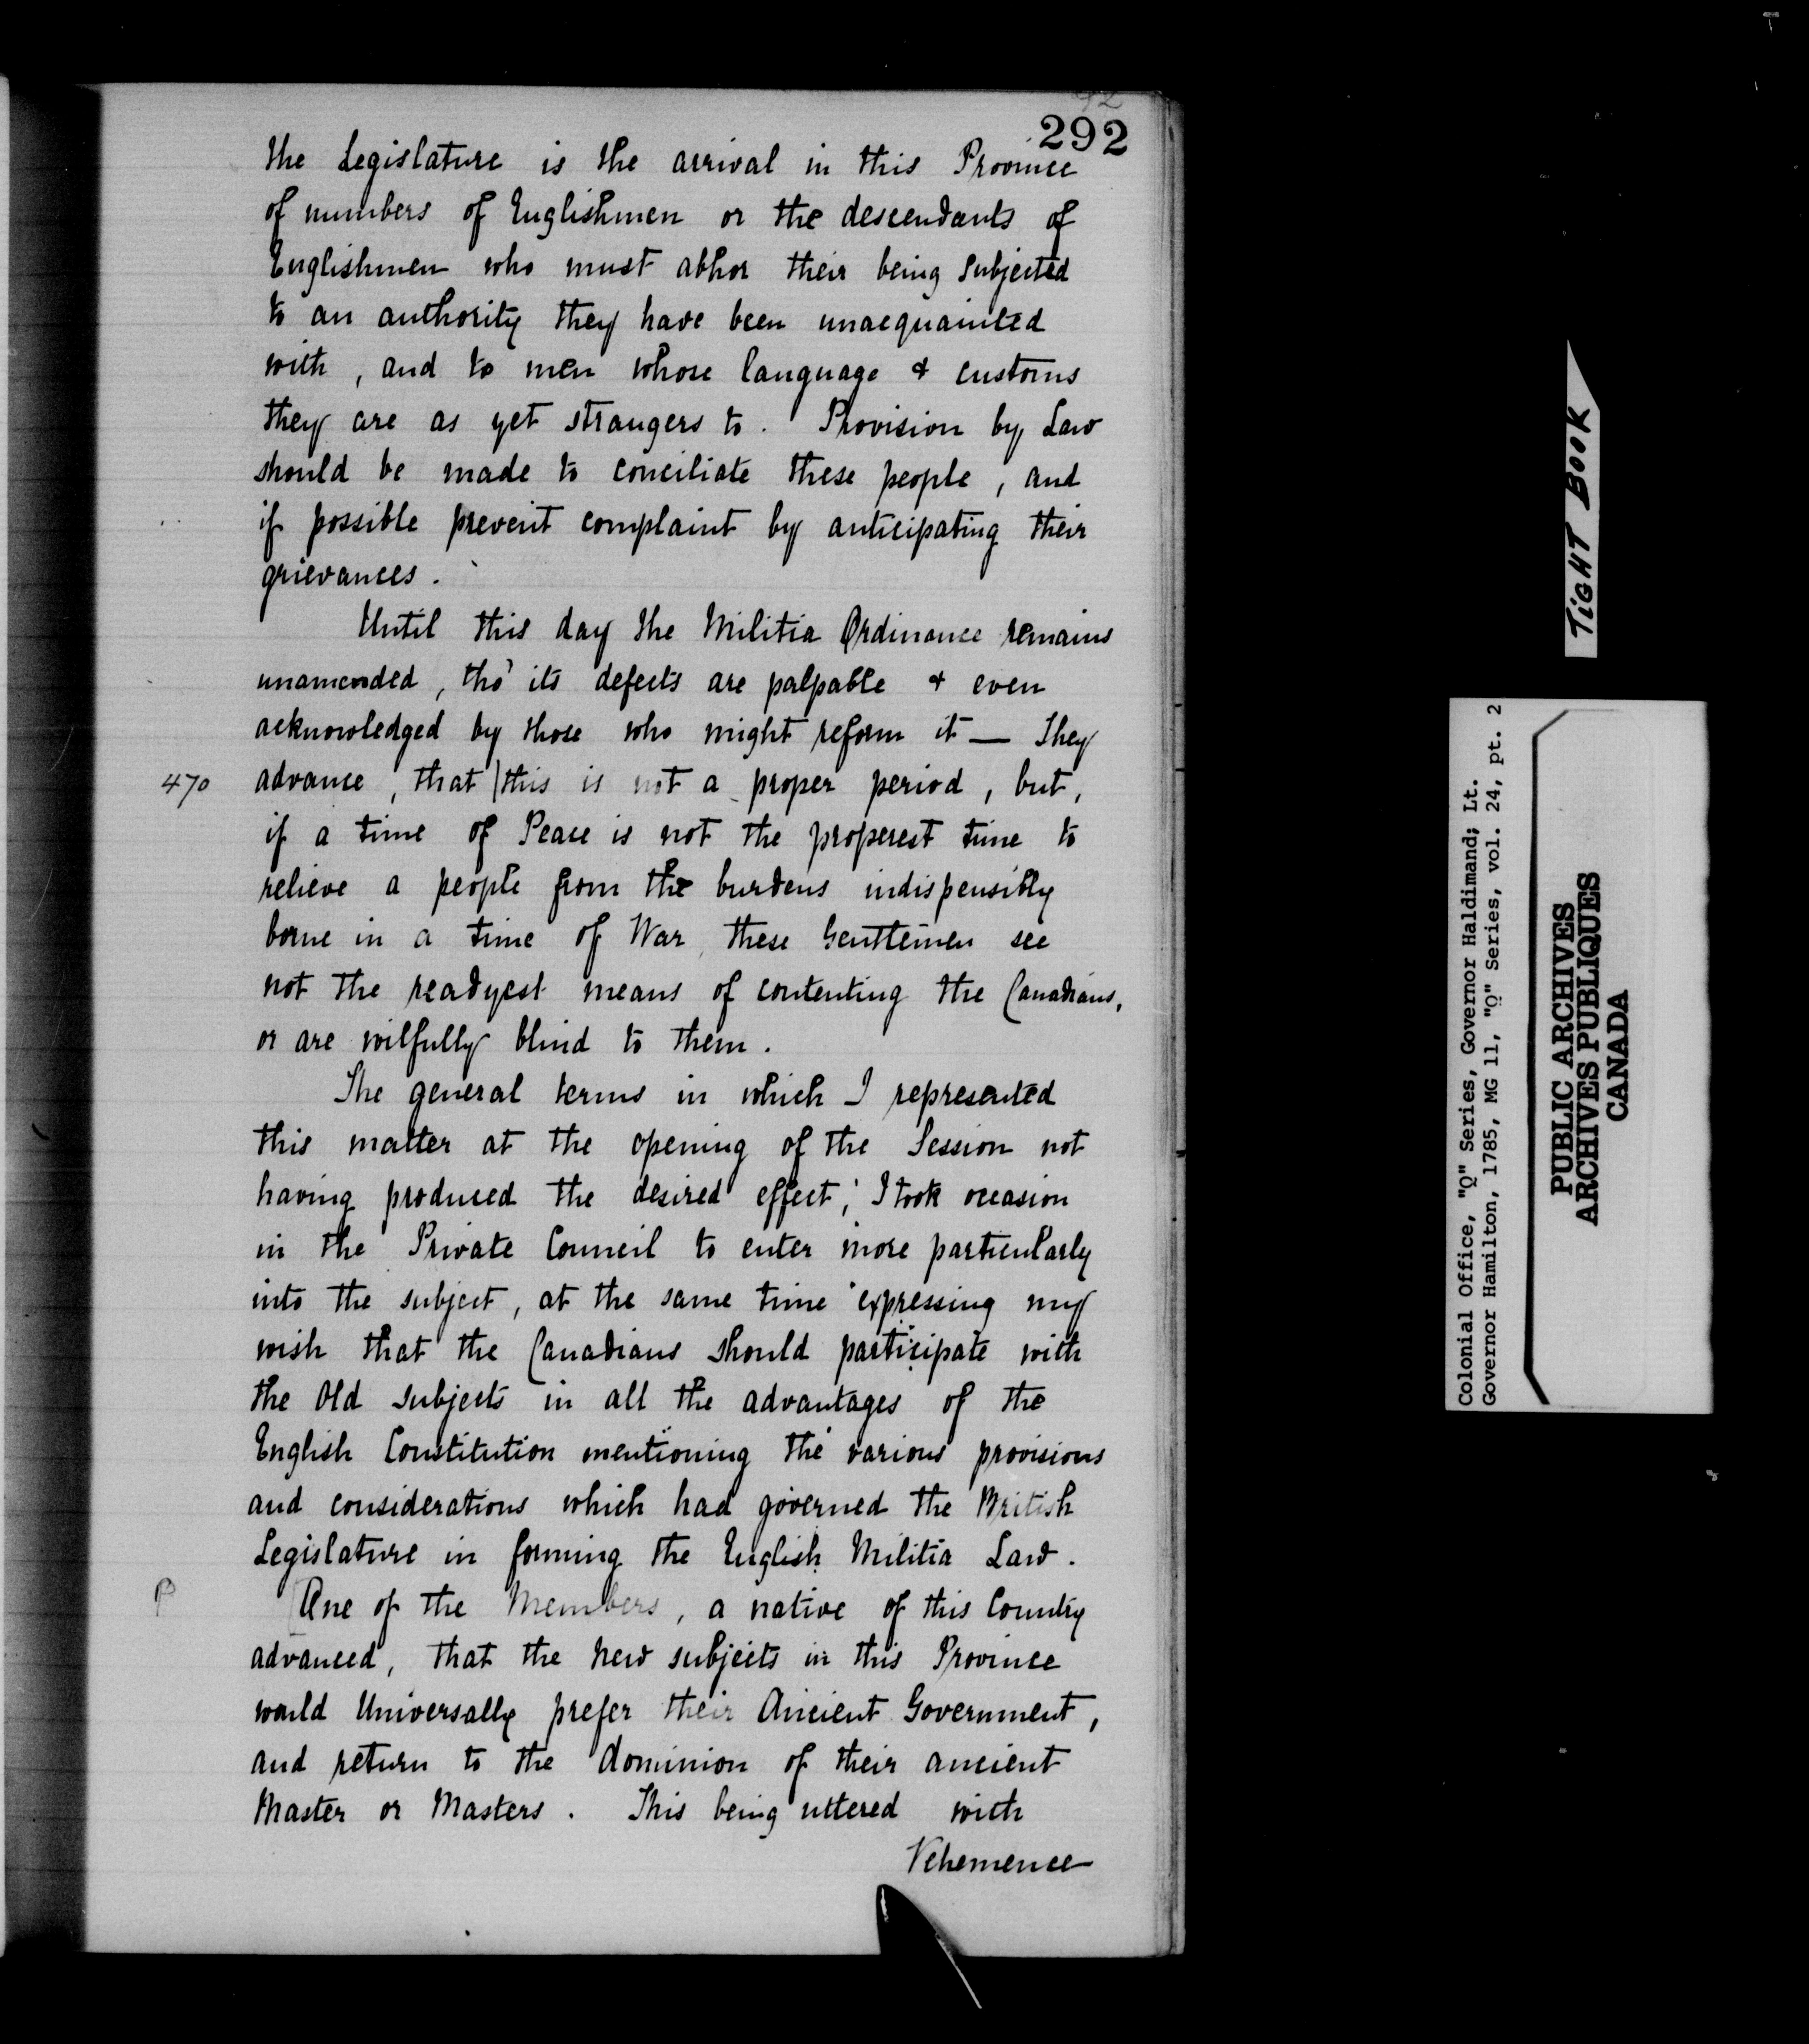 92
292
the Legislature is the arrival in this Province
of numbers of Englishmen or the descendants of
Englishmen who must abhor their being subjected
to an authority they have been unacquainted
with, and to men whose language & customs
they are as yet strangers to. Provision by Law
should be made to conciliate these people, and
if possible prevent complaint by anticipating their
grievances.
Until this day the Militia Ordinance remains
unamended, tho' its defects are palpable & even
acknowledged by those who might reform it — They
470 advance, that | this is not a proper period, but,
if a time of Peace is not the properest time to
relieve a people from the burdens indispensibly
borne in a time of War, these Gentlemen see
not the readyest means of contenting the Canadians,
or are wilfully blind to them.
The general terms in which I represented
this matter at the opening of the Session not
having produced the desired effect; I took occasion
in the Private Council to enter more particularly
into the subject, at the same time expressing my
wish that the Canadians should participate with
the Old Subjects in all the advantages of the
English Constitution mentioning the various provisions
and considerations which had governed the British
Legislature in forming the English Militia Law.
P [One of the Members, a native of this Country
advanced, that the new subjects in this Province
would Universally prefer their Ancient Government,
and return to the dominion of their ancient
Master or Masters. This being uttered with
Vehemence
TIGHT BOOK
Colonial Office, "Q" Series, Governor Haldimand; Lt.
Governor Hamilton, 1785, MG 11, "Q" Series, vol. 24, pt. 2
PUBLIC ARCHIVES
ARCHIVES PUBLIQUES
CANADA